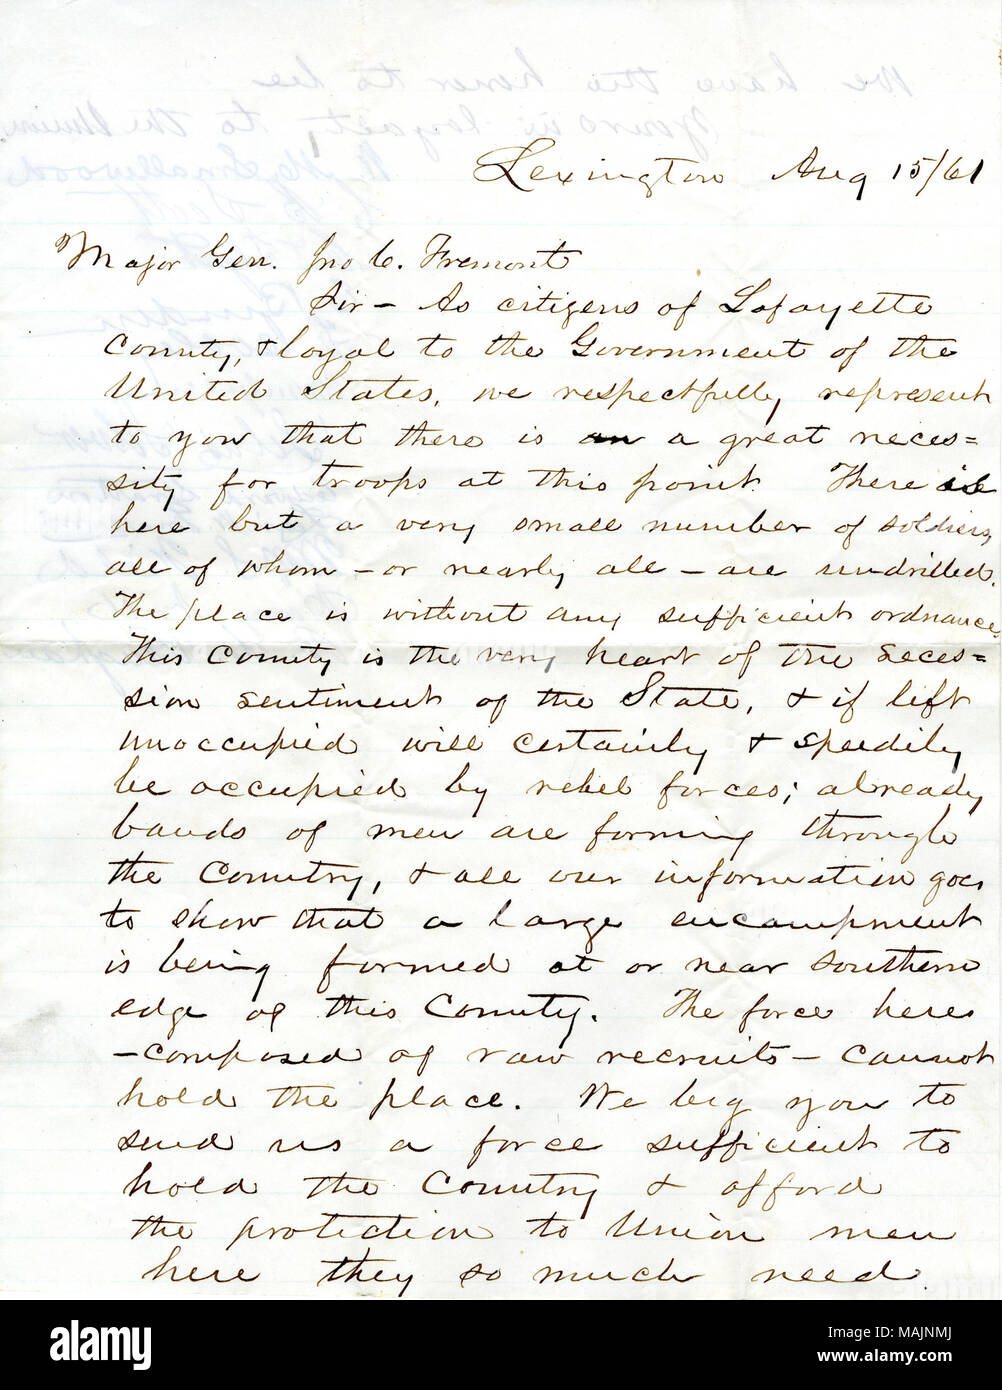 Lexington Aug 15/61
Major Gen. Jno C. Fremont
Sir - As citizens of Lafayette
County, & loyal to the Government of the
United States, we respectfully represent
to you that there is a great neces=
sity for troops at this point. There is
here but a very small number of soldiers,
all of whom - or nearly all - are undrilled.
The place is without any sufficient ordnance.
This County is the very heart of the seces=
sion sentiment of the State, & if left
unoccupied will certainly & speedily
be occupied by rebel forces; already
bands of men are forming through
the Country, & all our information goes
to show that a large encampment
is being formed at or near southern
edge of this County. The force here
- composed of raw recruits - cannot
hold the place. We beg you to
send us a force sufficient to
hold the Country & afford
the protection to Union men
here they so much need.
We have the honor to be
Yours in loyalty to the Union
Smallwood
alamy
Image ID: MAJNMJ
www.alamy.com